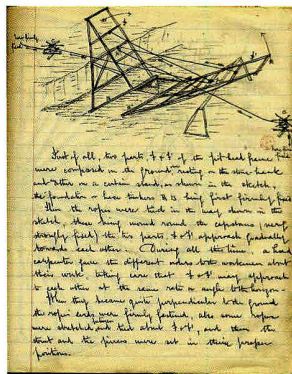 First of all, two parts, f & f' of the pit head frame
were composed on the ground, resting on the stone-heads
and other on a certain stand, as shown in the sketch,
the foundation or base timbers B B being first firmly fixed
Then the ropes were tied in the way shown in the
sketch, these being wound round the capstans (very
strongly fixed) the two parts, f & f' approach gradually
towards each other. During all this time, a head
carpenter gave the different orders to the workmen about
their work, taking care that f & f' may approach
to each other at the same rate or angle to the horizon.
When they became quite perpendicular to the ground
the ropes' ends were firmly fastened, also some ropes
were stretched between and tied about f & f', and then the
strut and the pieces were set in their proper
positions.